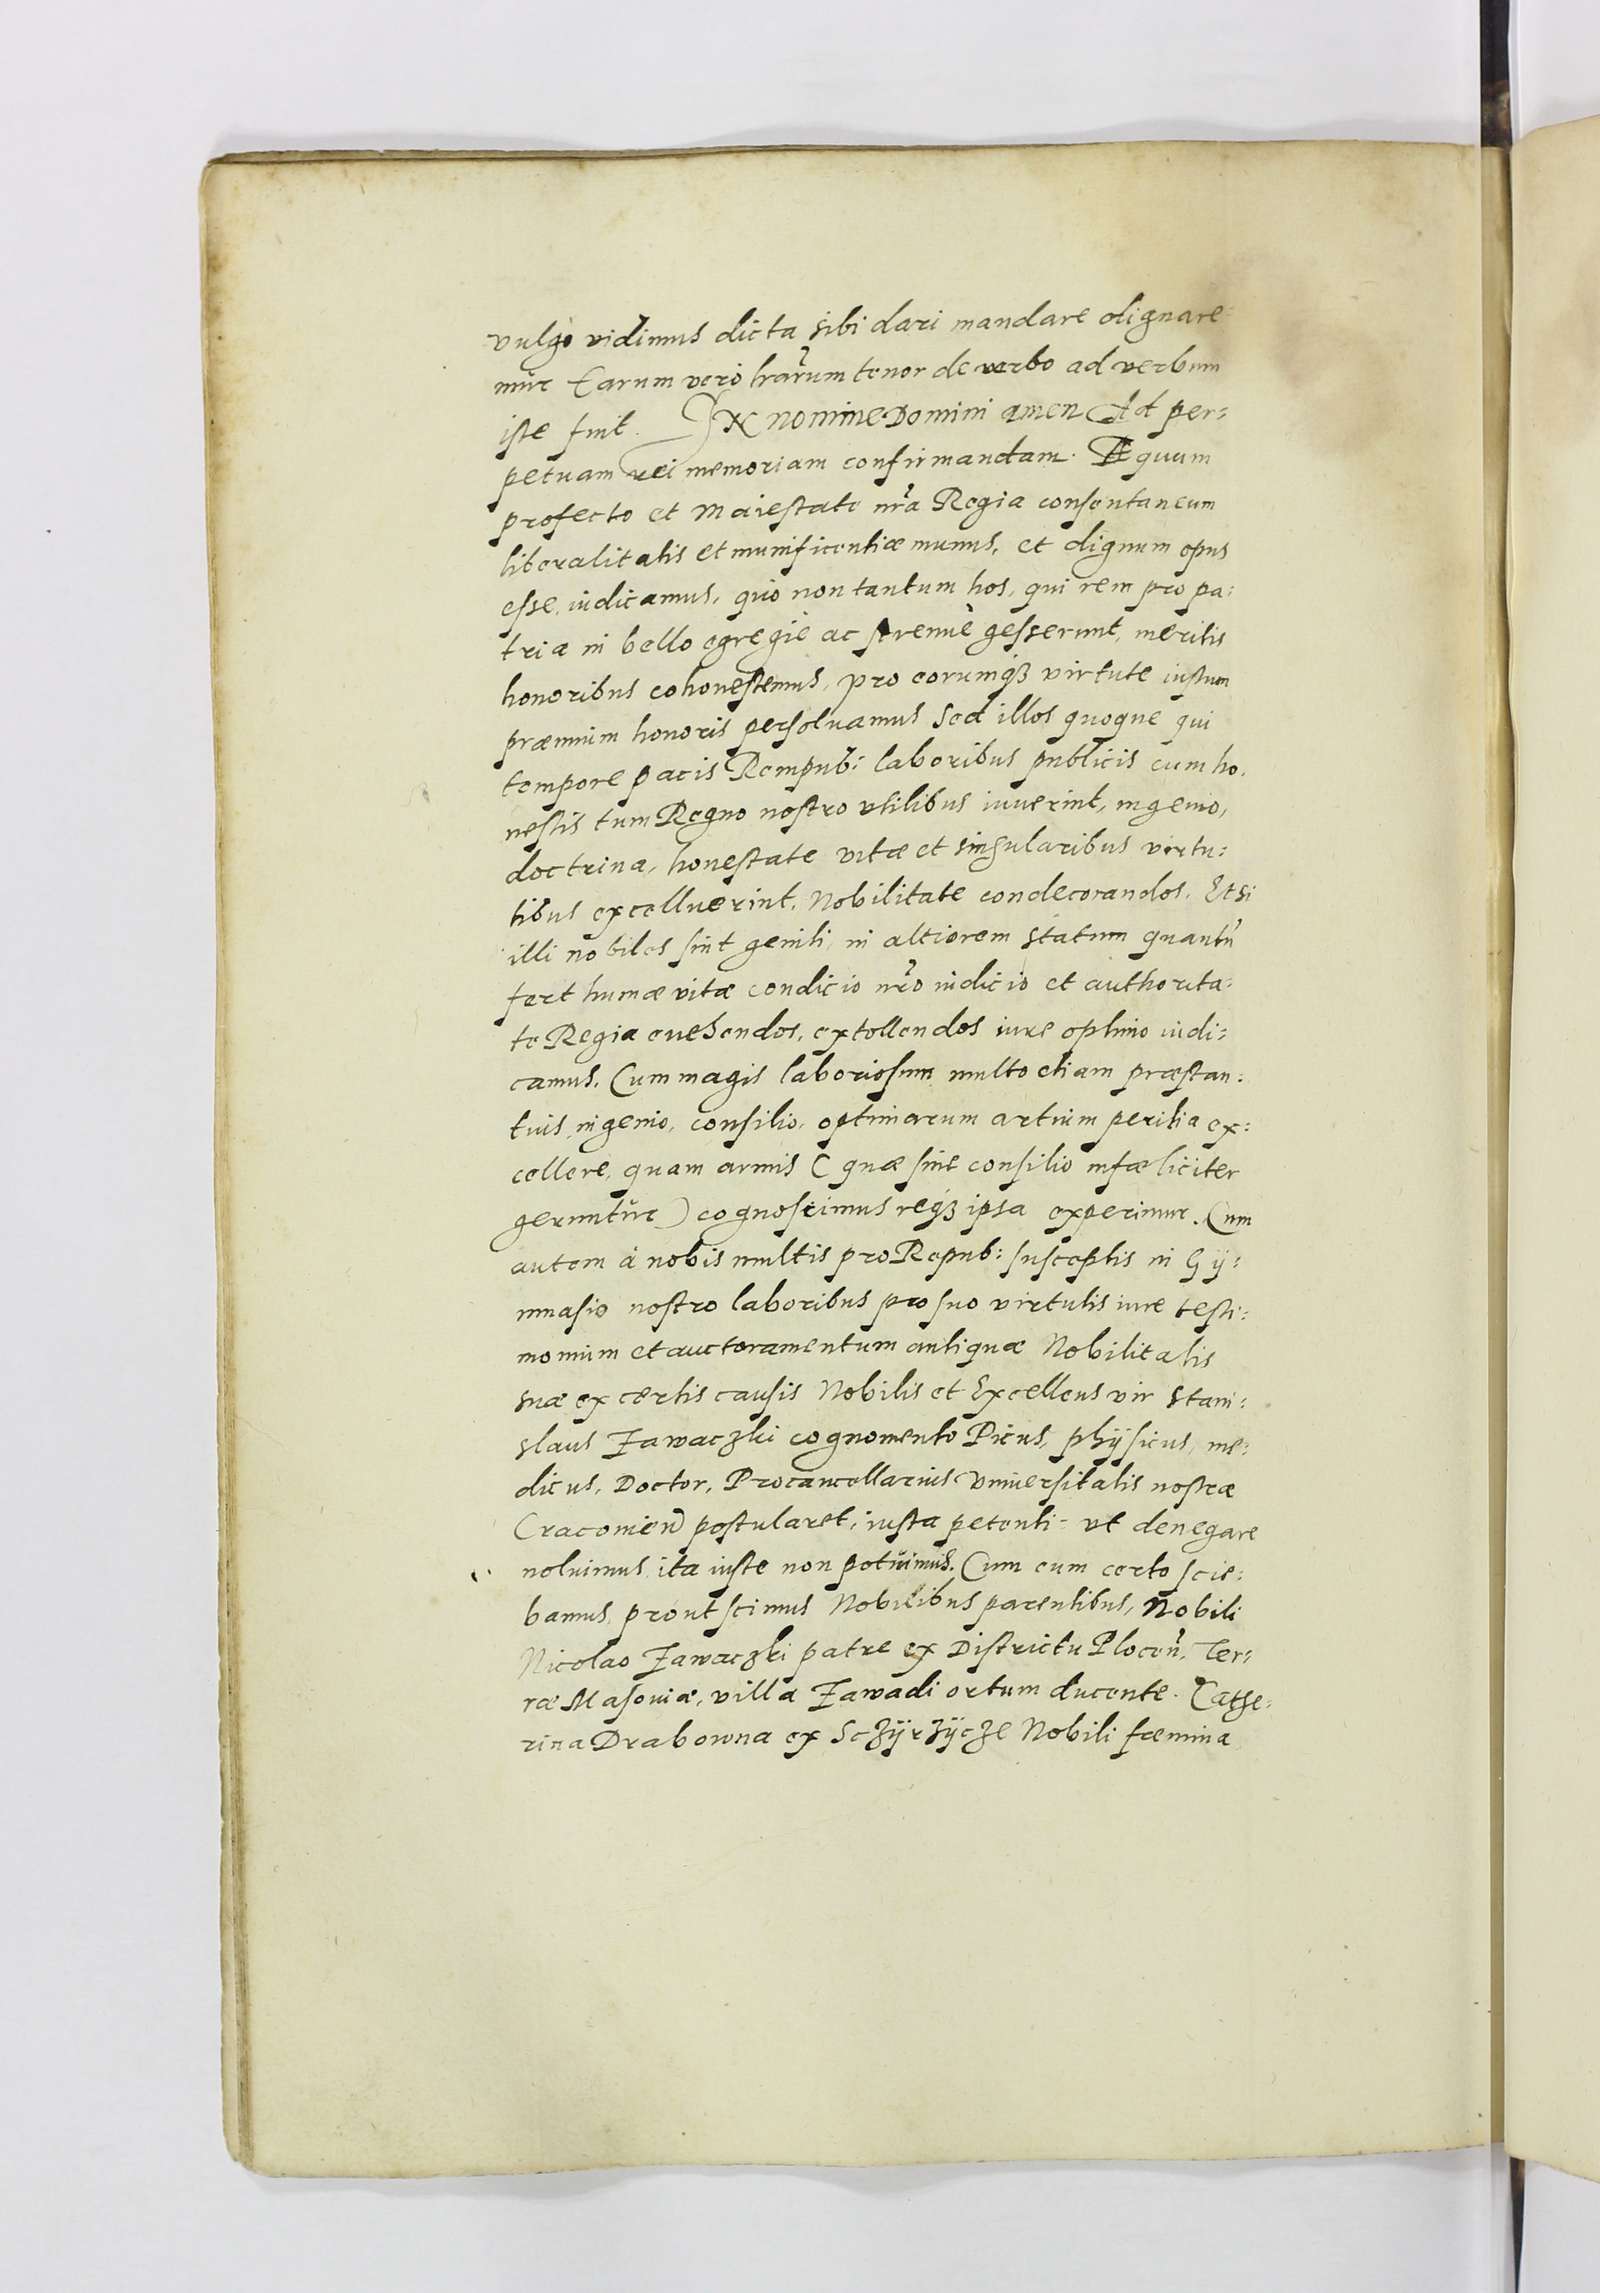 vulgo vidimus dicta sibi dari mandare dignare
mur Earum vero lrãrum tenor de verbo ad verbum
iste fuit. IN nomine Domini amen Ad per:
petuam rei memoriam confirmandam. Æquum
profecto et Maiestate nrã Regia consentaneum
liberalitatis et munificentiæ munus, et dignum opus
esse iudicamus, quo non tantum hos, qui rem pro pa:
tria in bello egregie ac strenuè gesserunt, meritis
honoribus cohonestemus, pro eorumq3 virtute iustum
præmium honoris persoluamus Sed illos quoque qui
tempore pacis Rempub: laboribus publicis cum ho,
nestis tum Regno nostro vtilibus iuuerint, ingenio,
doctrina, honestate vitæ et singularibus virtu:
tibus excelluerint, Nobilitate condecorandos. Etsi
illi nobiles sint geniti, in altiorem statum quantũ
fert humæ vitæ condicio nrõ iudicio et authorita:
te Regia euehendos, extollendos iure optimo iudi:
camus. Cum magis laboriosum multo etiam præstan:
tius ingenio, consilio, optimarum artium peritia ex:
cellere, quam armis (quæ sine consilio infæliciter
geruntur) cognoscimus req3 ipsa experimur. Cum
autem à nobis multis pro Repub: susceptis in Gÿ:
mnasio nostro laboribus pro suo virtutis iure testi:
monium et auctoramentum antiquæ Nobilitatis
suæ ex certis causis Nobilis et Excellens vir Stani:
slaus Zawaczki cognomento Picus, phÿsicus, me:
dicus, Doctor, Procancellarius Vniuersitatis nostræ
Cracouieñ postularet, iusta petenti: vt denegare
noluimus ita iuste non potuimus. Cum eum certo scie:
bamus prout scimus Nobilibus parentibus, Nobili
Nicolao Zawaczki patre ex Districtu Ploceñ, Ter:
ræ Masouiæ, villa Zawadi ortum ducente. Cathe:
rina Drabowna ex Sczÿrzÿcze Nobili fœmina